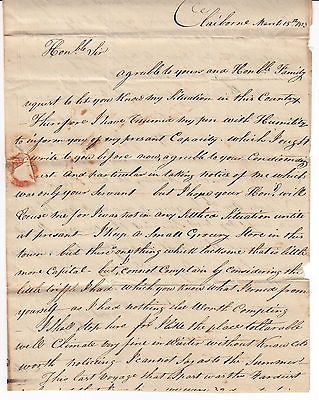 Claiborne March 15th
Honble Sir
agrible to yours and Honble Family
request to let you Know my Situation in this Country
Therefore I have assumed my pen with Humility
to inform you of my present Capacity which I ought
write to you before now, agreable to your
and particular in taking notice of me which
was only your Servant but I hope your Honr. will
Excuse me for I was not in any Settled Situation untile
at present I Keep a Small Grocery Store in this
town but there one thing which lacksome that is little
more Capital but I cannot Complain by Considering the
little I had which you know what I from
yourself as I have nothing else Worth
I shall stop here for I like the place tollarable
well Climate very fine in Winter without Know Cold
worth noticing I cannot say as to the Summer
This last Voyage that I past was the Hardiest